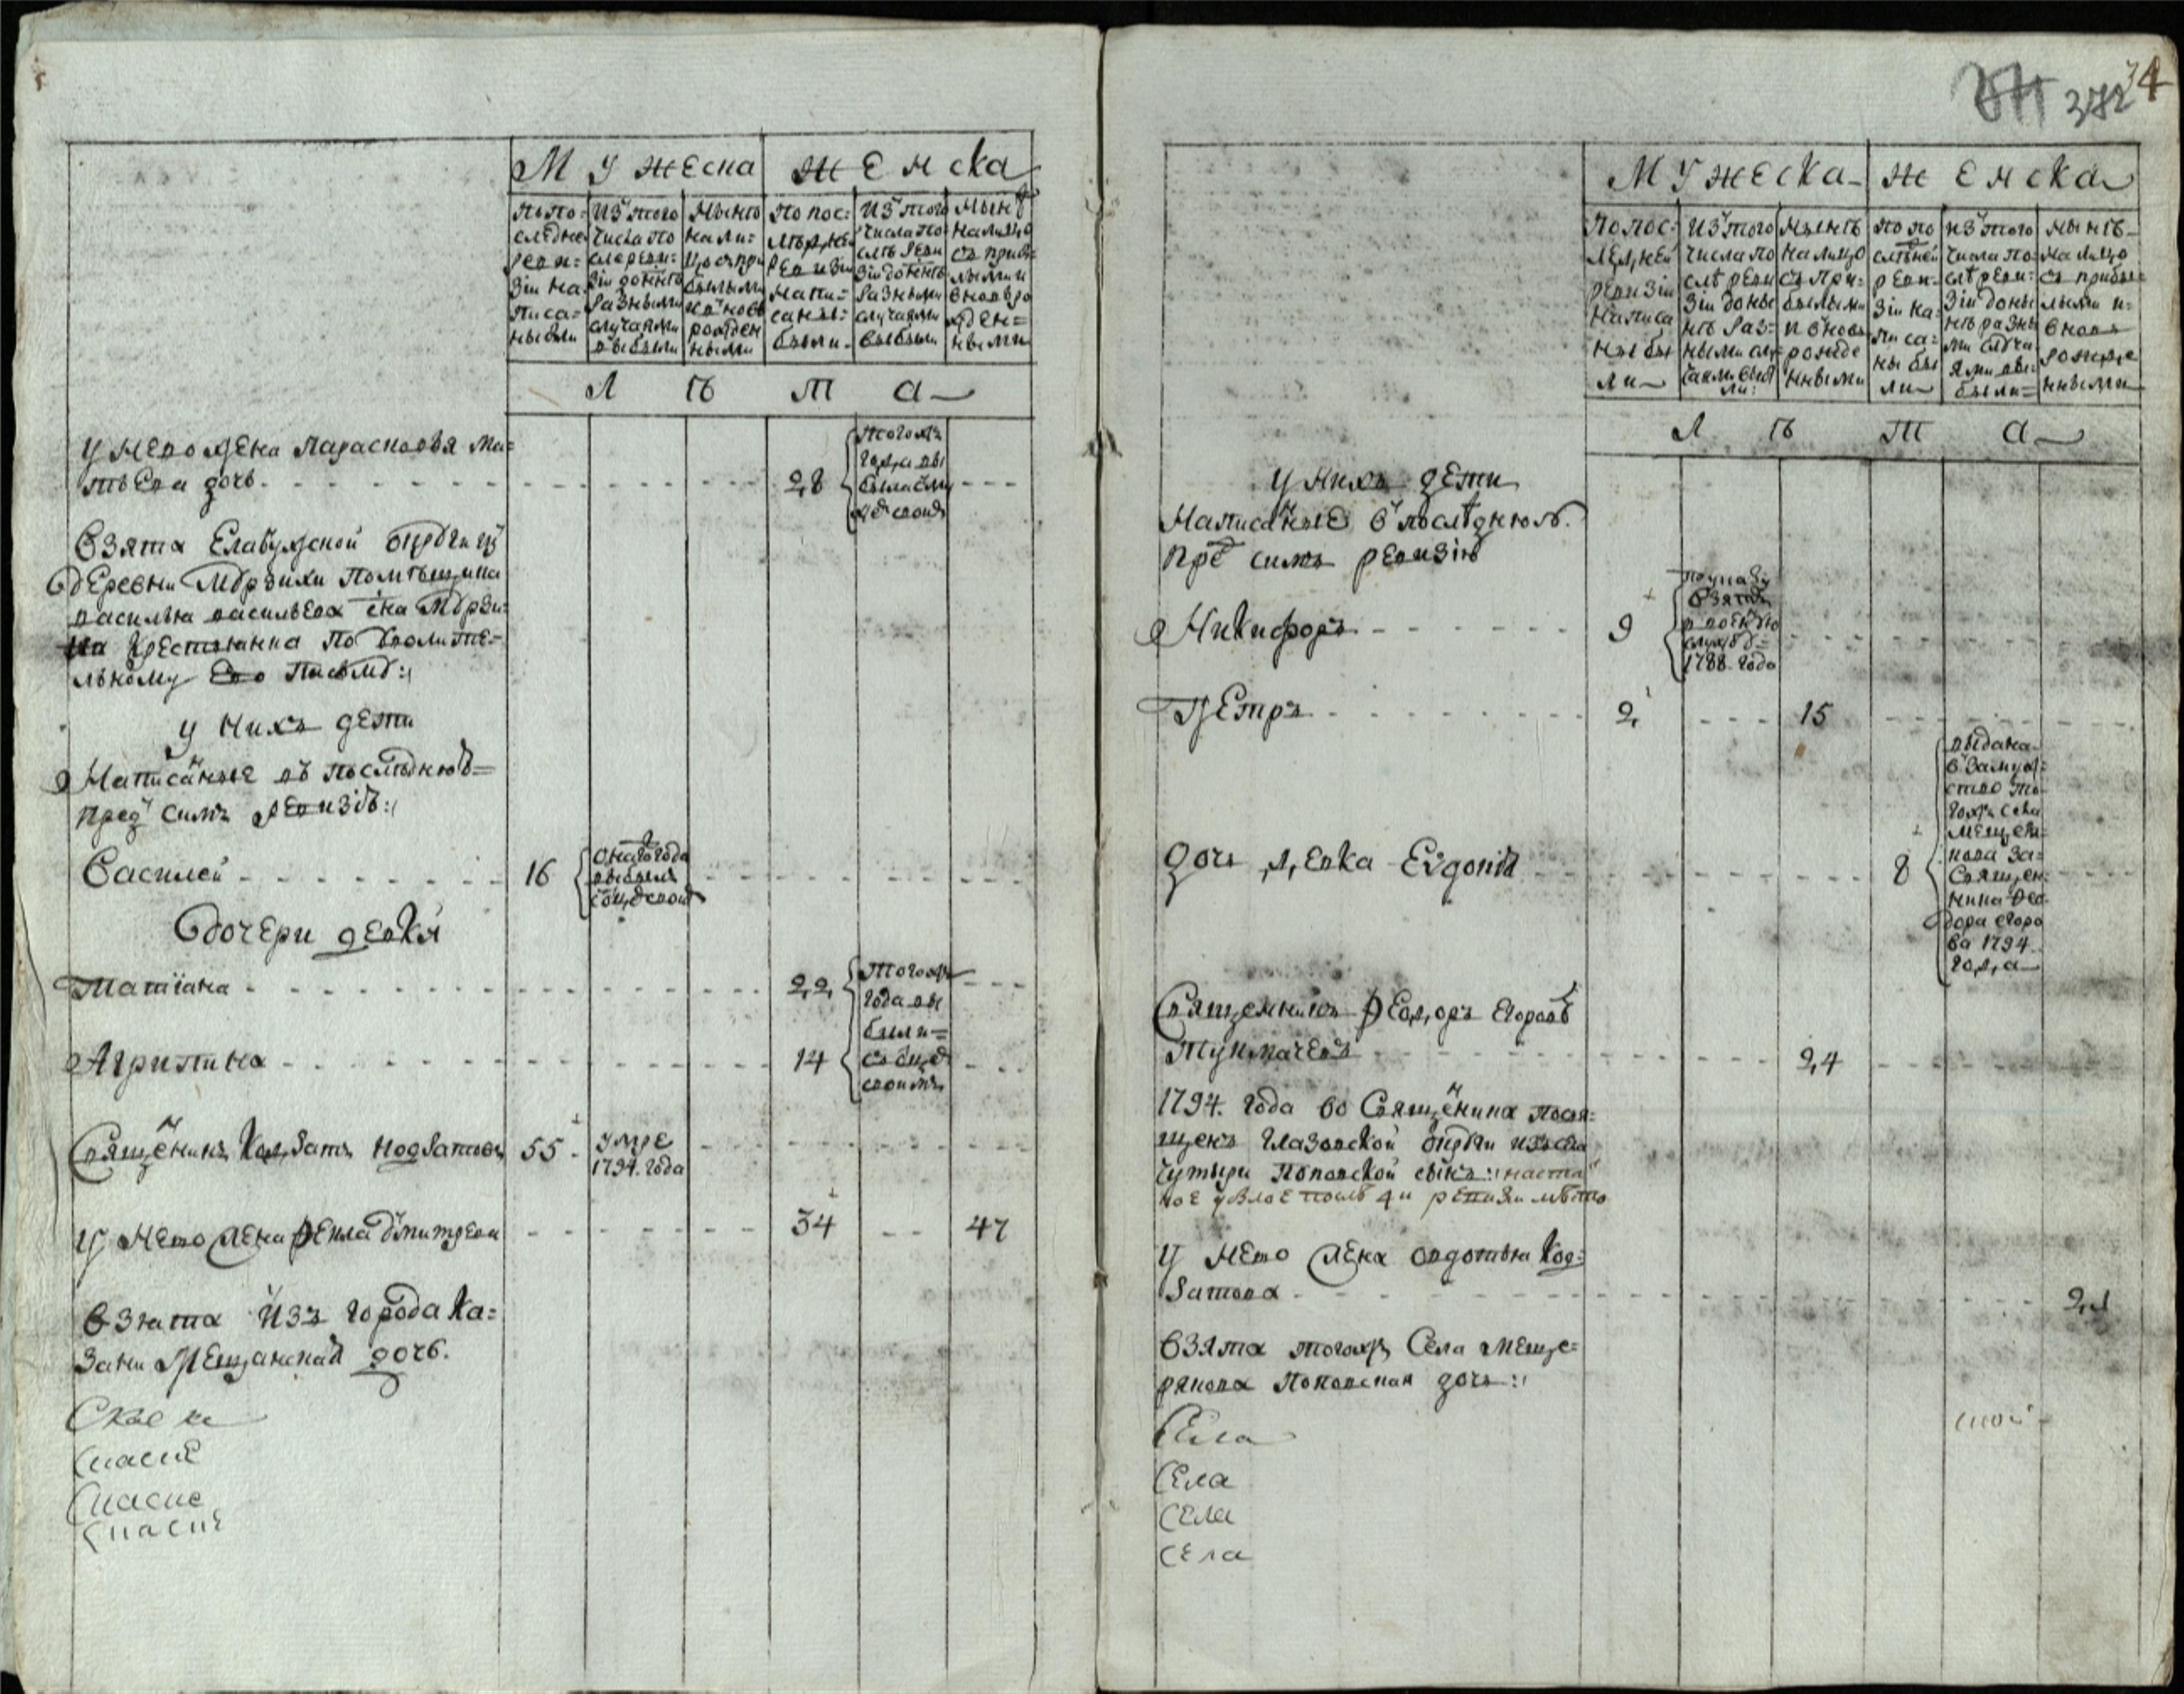 мужеска
женска
по по=
следне
реви=
зіи на
писа=
ны были
изъ того
числа по
сле реви=
зіи донѣнѣ
разными
случаями
выбыли
нынѣ
нали=
цо съ при
былыми
и вновь
рожден
ными
по пос=
лѣдне
ревизіи
напи=
саны=
были
изъ того
числа по
слѣ реви
зіи донѣнѣ
разными
случаями
выбыли
нынѣ
налицо
съ прибы
лыми и
вновь ро
жден=
ными
лѣта
у него жена парасковья ма=
твеева дочь
28
тогожъ
года вы
была с му
жемъ своим
взята елабужской округи изъ
деревни мурзихи помѣщика
василья васильева сна мурзи=
на крестьянка по уволите=
льному его писму
у нихъ дети
написанные въ последнюю=
пред симъ ревизію
василей
16
онаго года
выбылъ
с отцом своим
дочери девки
татіана
22
тогожъ
года вы
были=
съ отцем
своимъ
агрипина
14
священникъ
55
умре
1794. года
у него жена фекла дмитреева
34
47
взята изъ города ка=
зани мещанская дочь.
спасие
спасие
спасие
372
4
мужеска
женска
по пос=
ледней
ревизіи
написа
ны бы
ли
изъ того
числа по
слѣ реви
зіи доны
нѣ раз=
ными слу
чаями выбы
ли
нынѣ
налицо
съ при=
былыми
и вновь
рожде
нными
по по
слѣдней
реви=
зіи на
писа=
ны бы
ли
изъ того
числа по=
слѣ реви=
зіи доны
нѣ разны
ми случа
ями вы=
были=
нынѣ
налицо
съ прибы=
лыми и=
вновь
рожде
нными
лѣта
у нихъ дети
написанные в последнюю.
пред симъ ревизію
никифоръ
9
по указу
взятъ
в военную
службу=
1788. года
петръ
2
15
дочь девка
8
выдана
в замуж=
ство то
гожъ села
меще=
кова за=
священ
ника фео
дора егоро
ва 1794
года
священникъ феодоръ егоровъ
тукмачевъ
24
1794. года во священника посвя=
щенъ глазовской округи изъ села
поповской сынъ
у него жена авдотья код=
ратова
21
взята тогожъ села меще=
рякова поповская дочь
села
села
села
села